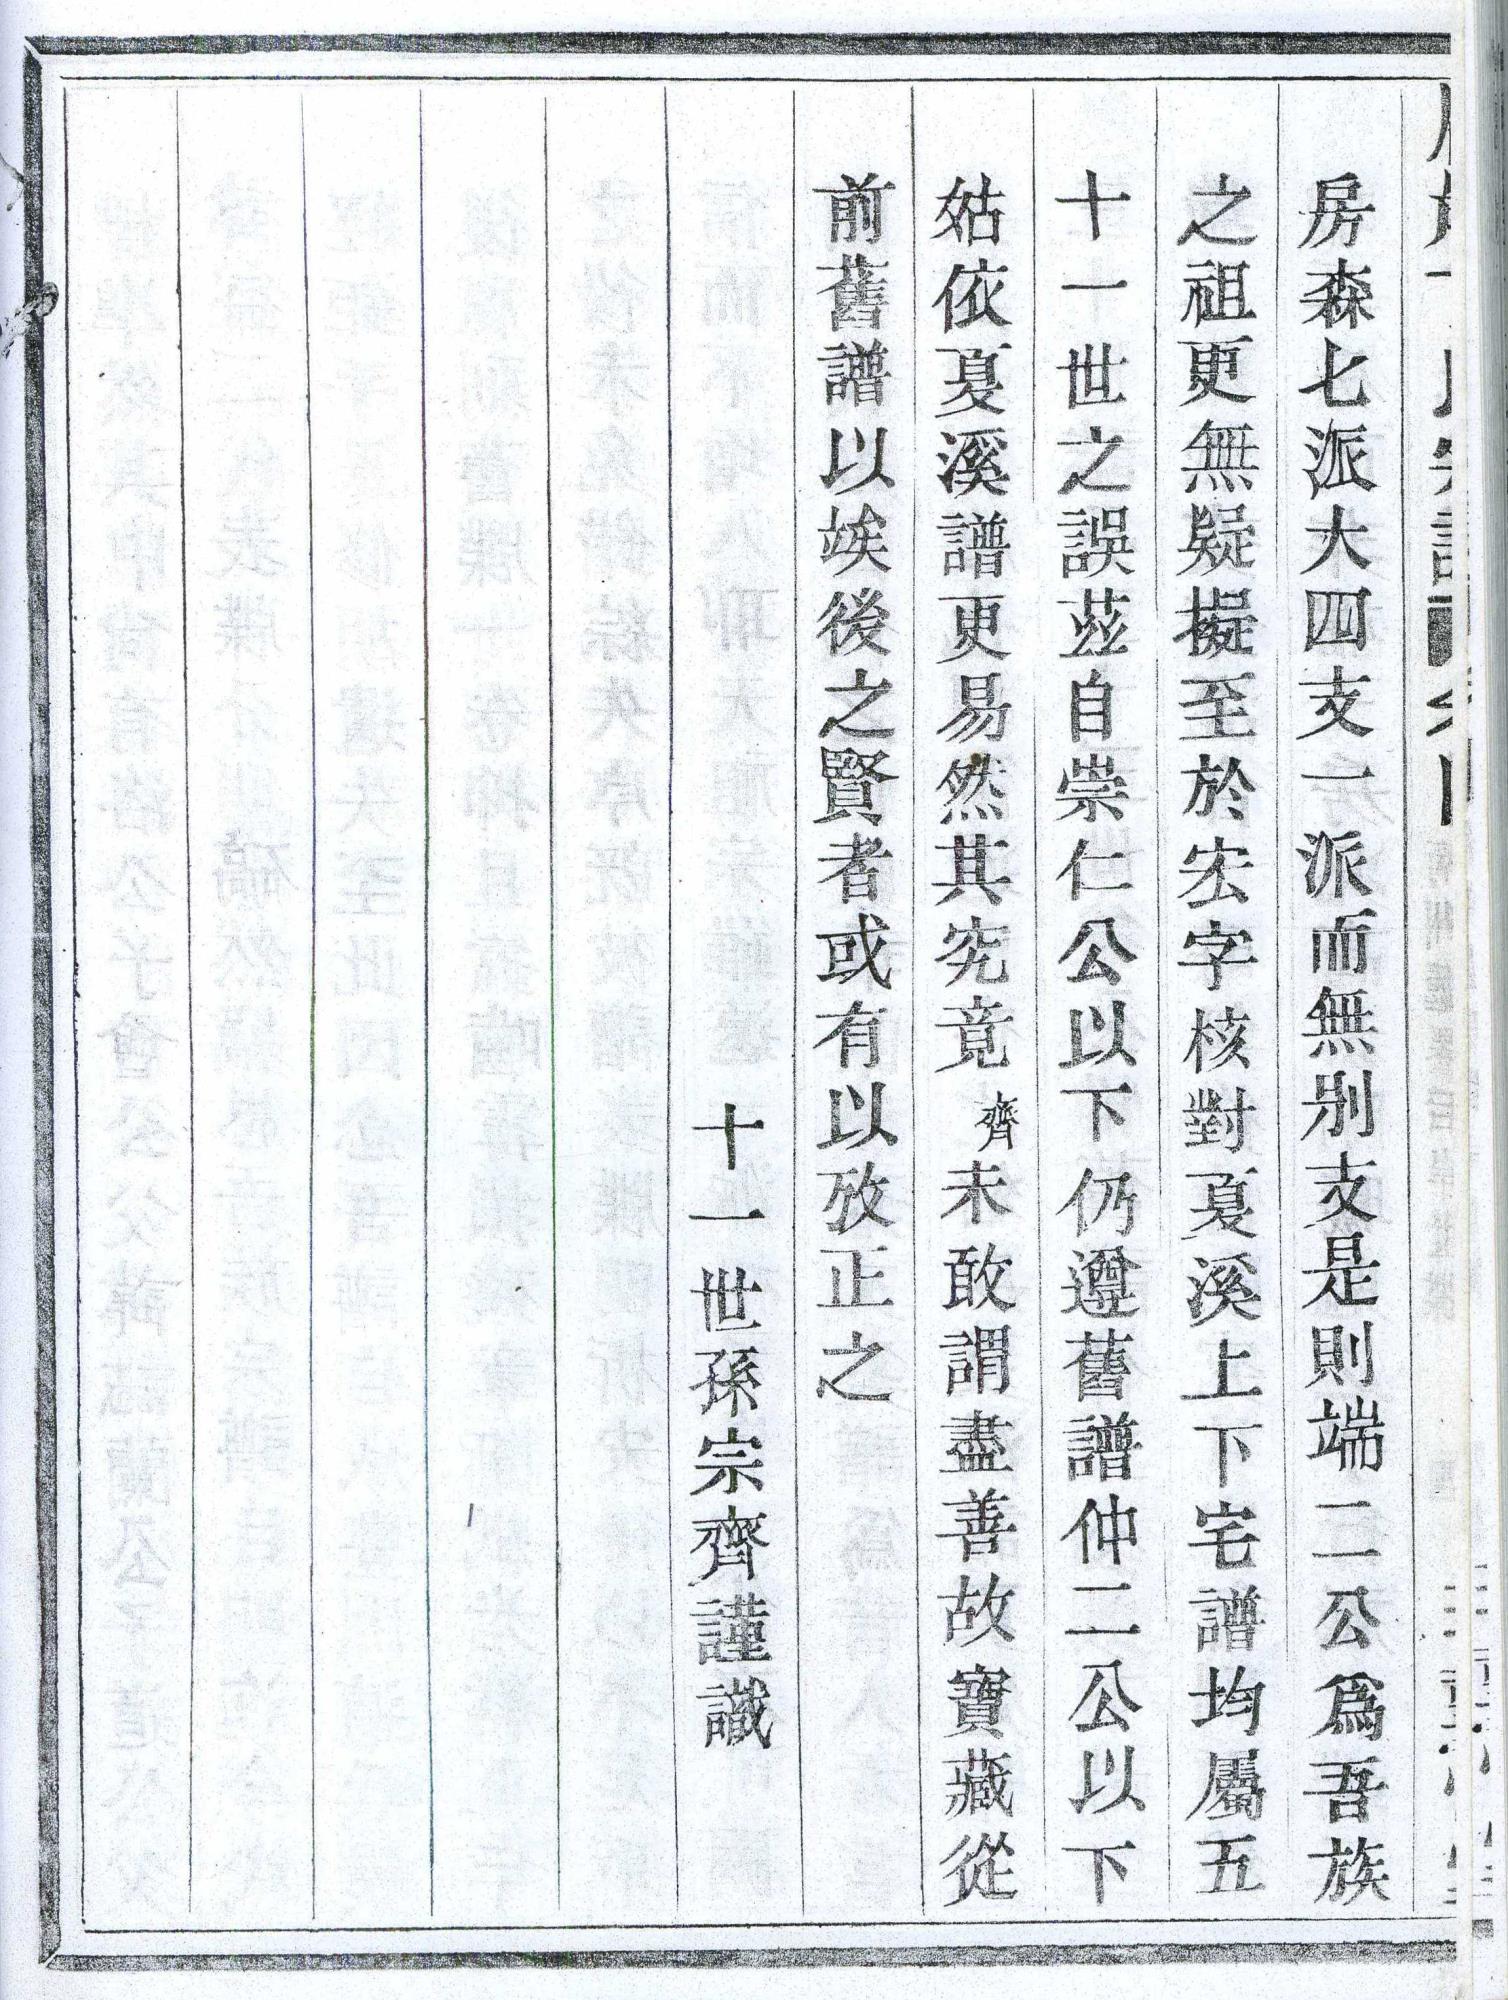 房森七派大四支一派而無别支是則端二公爲吾族
之祖更無疑擬至於宏字核對夏溪上下宅譜均屬五
十一世之誤茲自崇仁公以下仍遵舊譜仲二公以下
姑依夏溪譜更易然其究竟齊未敢謂盡善故寶藏從
前舊譜以竢後之賢者或有以攷正之
十一世孫宗齊謹識